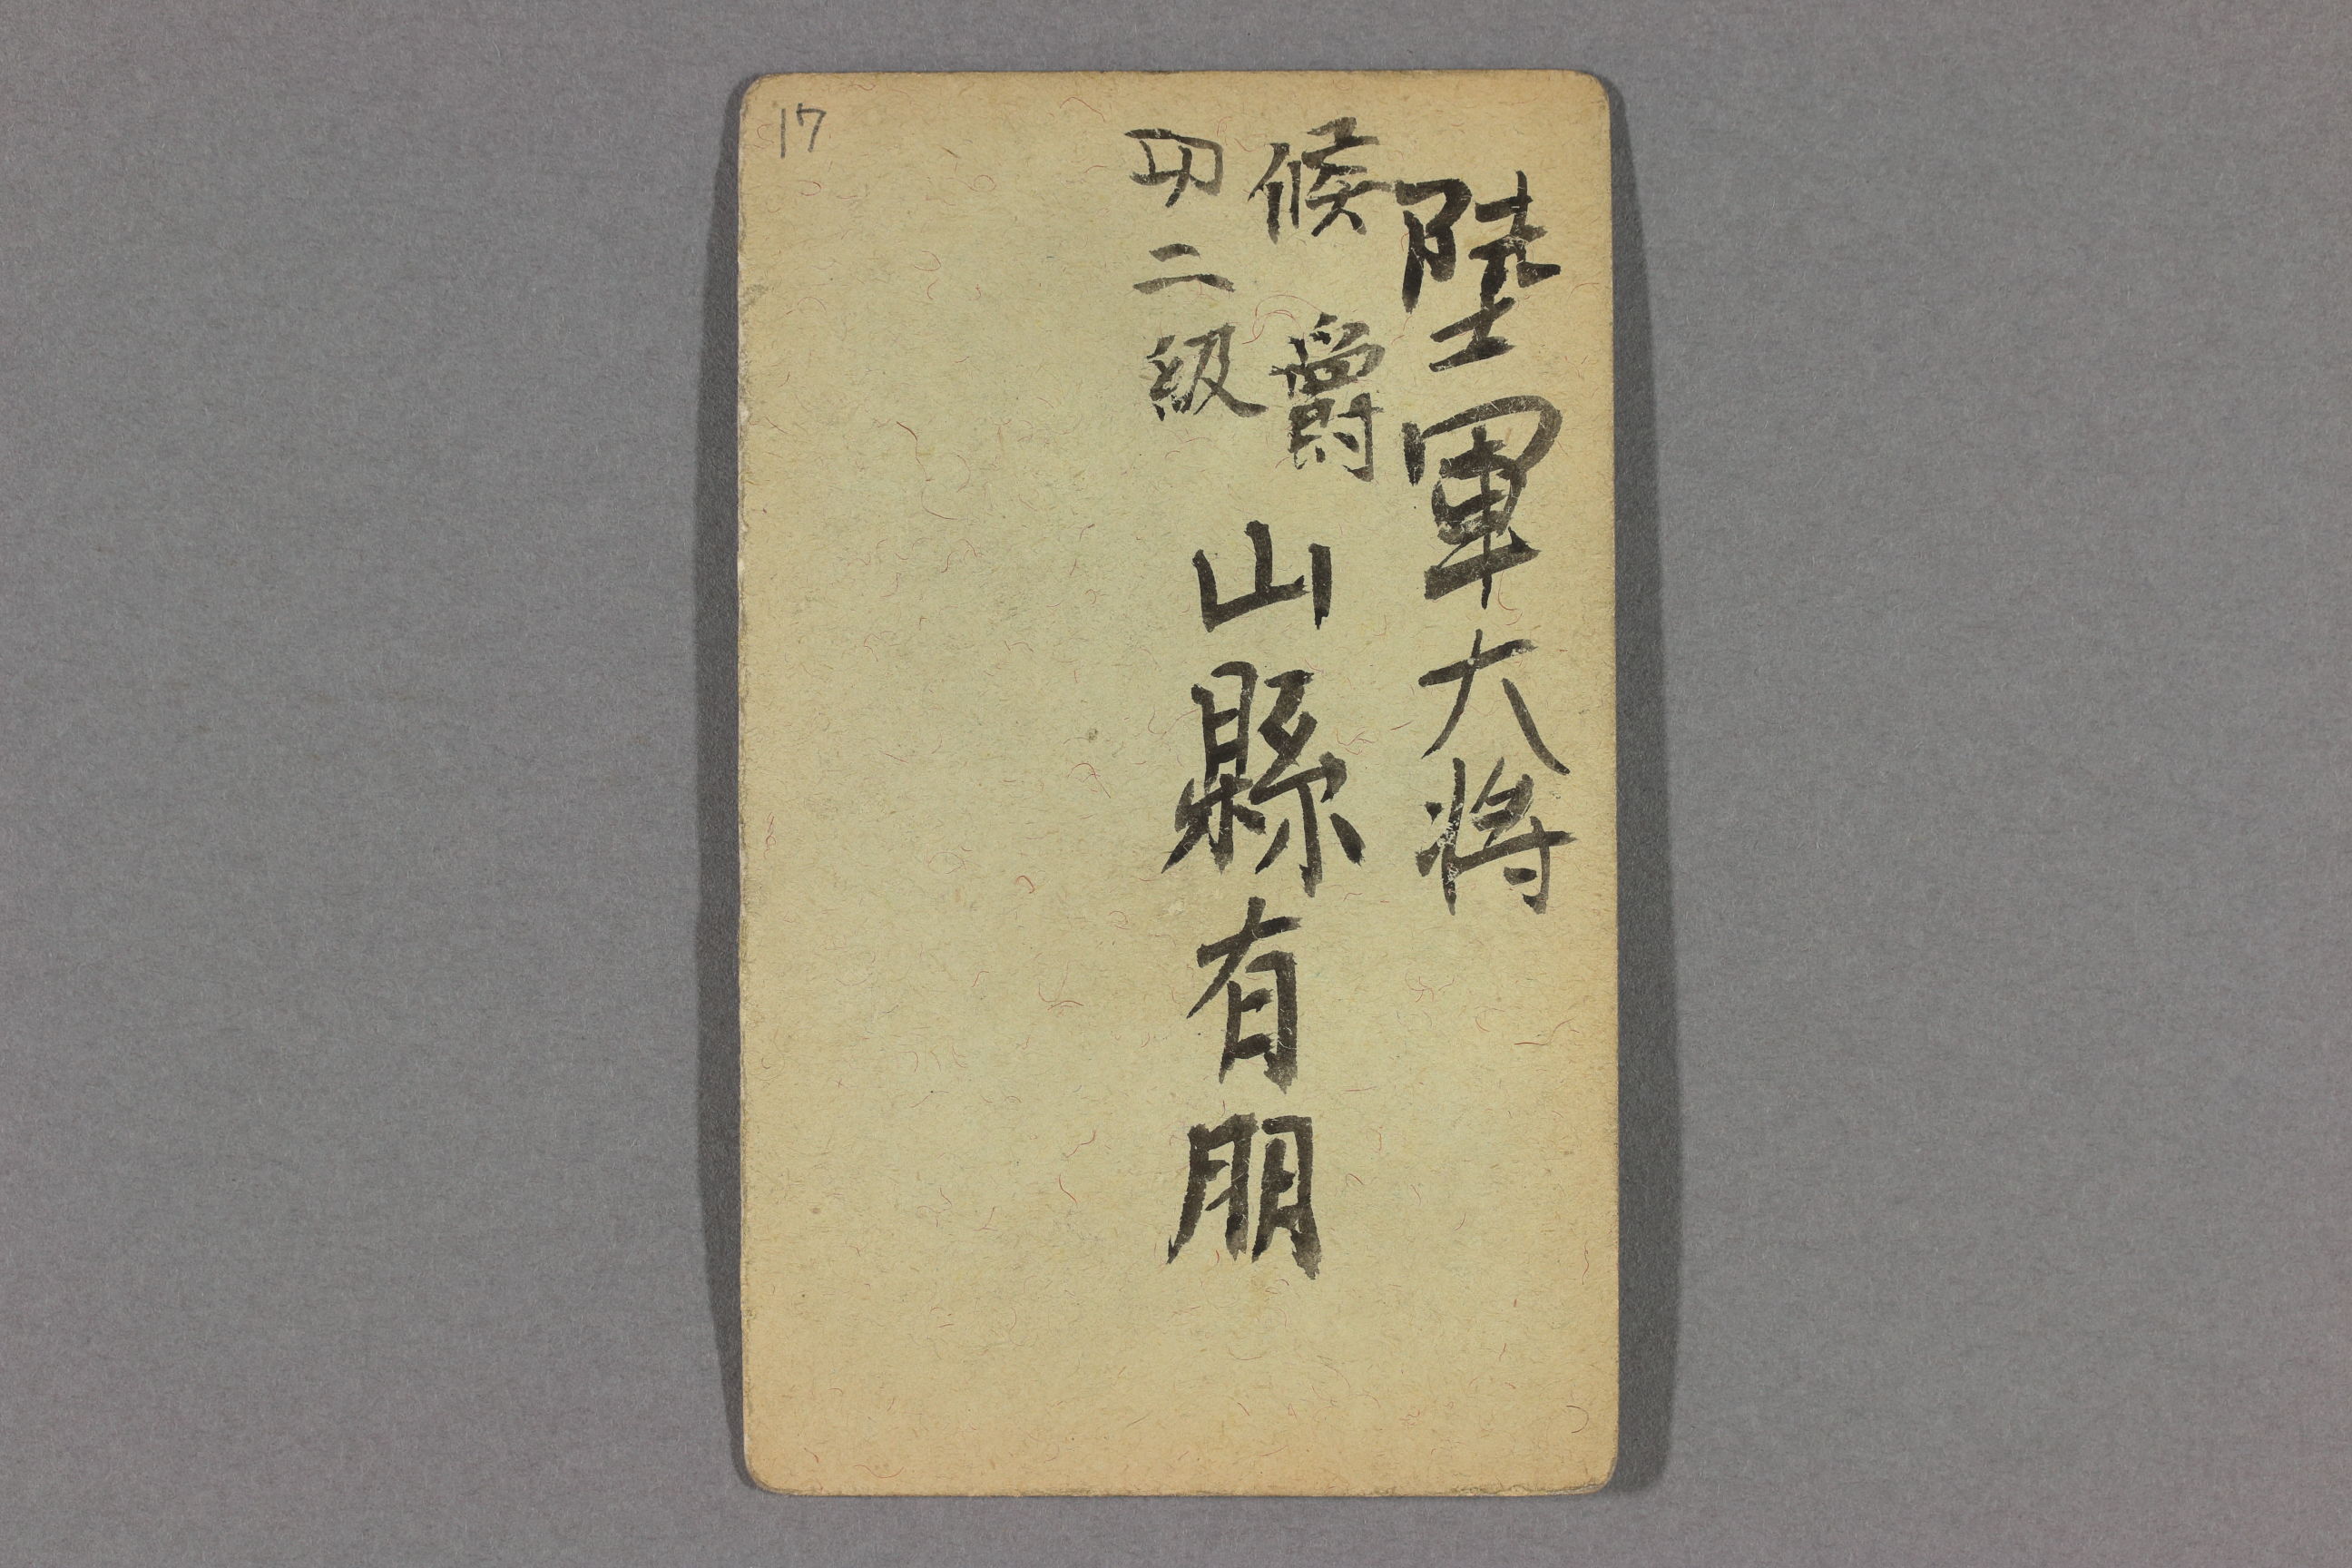 陸軍大将
候爵
功二級
山縣有朋
17